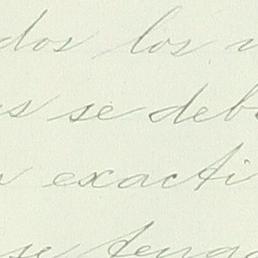 dos los
s se deb
exacti
se tenga